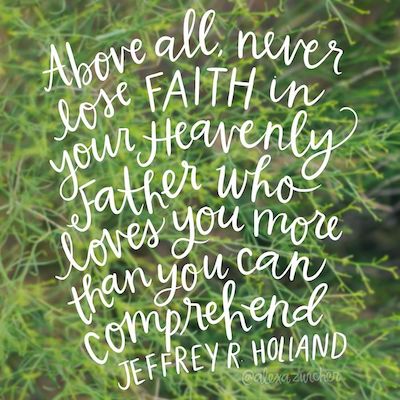 Above all, never
lose FAITH in
your Heavenly
Father who
loves you more
than you can
comprehend
JEFFREY R. HOLLAND
@alexazurcher